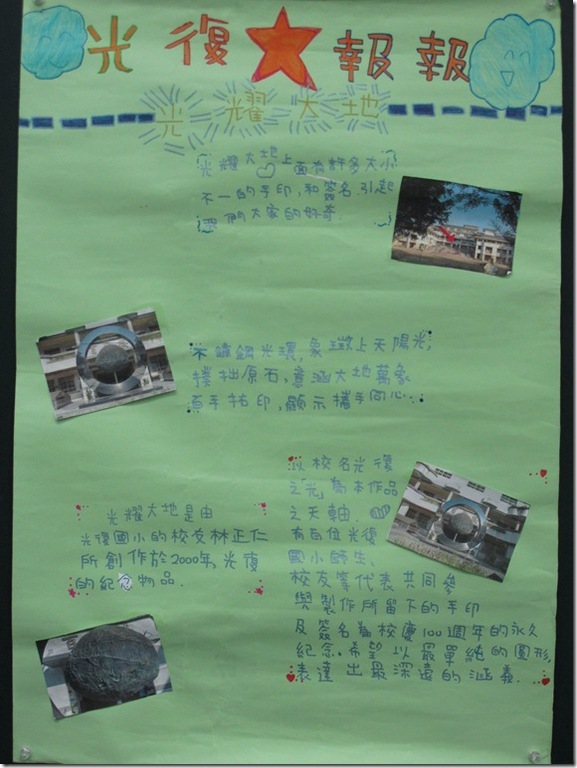 光復★報報
光耀大地
光耀大地上面有許多大小
不一的手印,和簽名.引起
我們大家的好奇.
不鏽鋼光環,象徵上天陽光,
撲拙原石,意涵大地萬象
百手拓印,顯示攜手同心.
以校名光復
之「光」為本作品
之天軸.
有百位光復
國小師生、
校友等代表共同參
與製作所留下的手印
及簽名為校慶100週年的永久
紀念。希望以最單純的圓形,
表達出最深遠的涵義.
光耀大地是由
光復國小的校友林正仁
所創作於2000年,光復
的紀念物品.